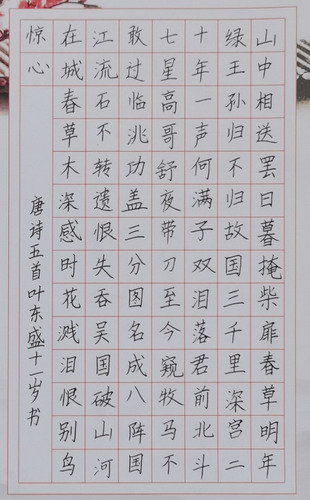 山中相送罢日暮掩柴扉春草明年
绿王孙归不归故国三千里深宫二
十年一声何满子双泪落君前北斗
七星高哥舒夜带刀至今窥牧马不
敢过临洮功盖三分图名成八阵国
江流石不转遗恨失吞吴国破山河
在城春草木深感时花溅泪恨别鸟
惊心
唐诗五首叶东盛十一岁书